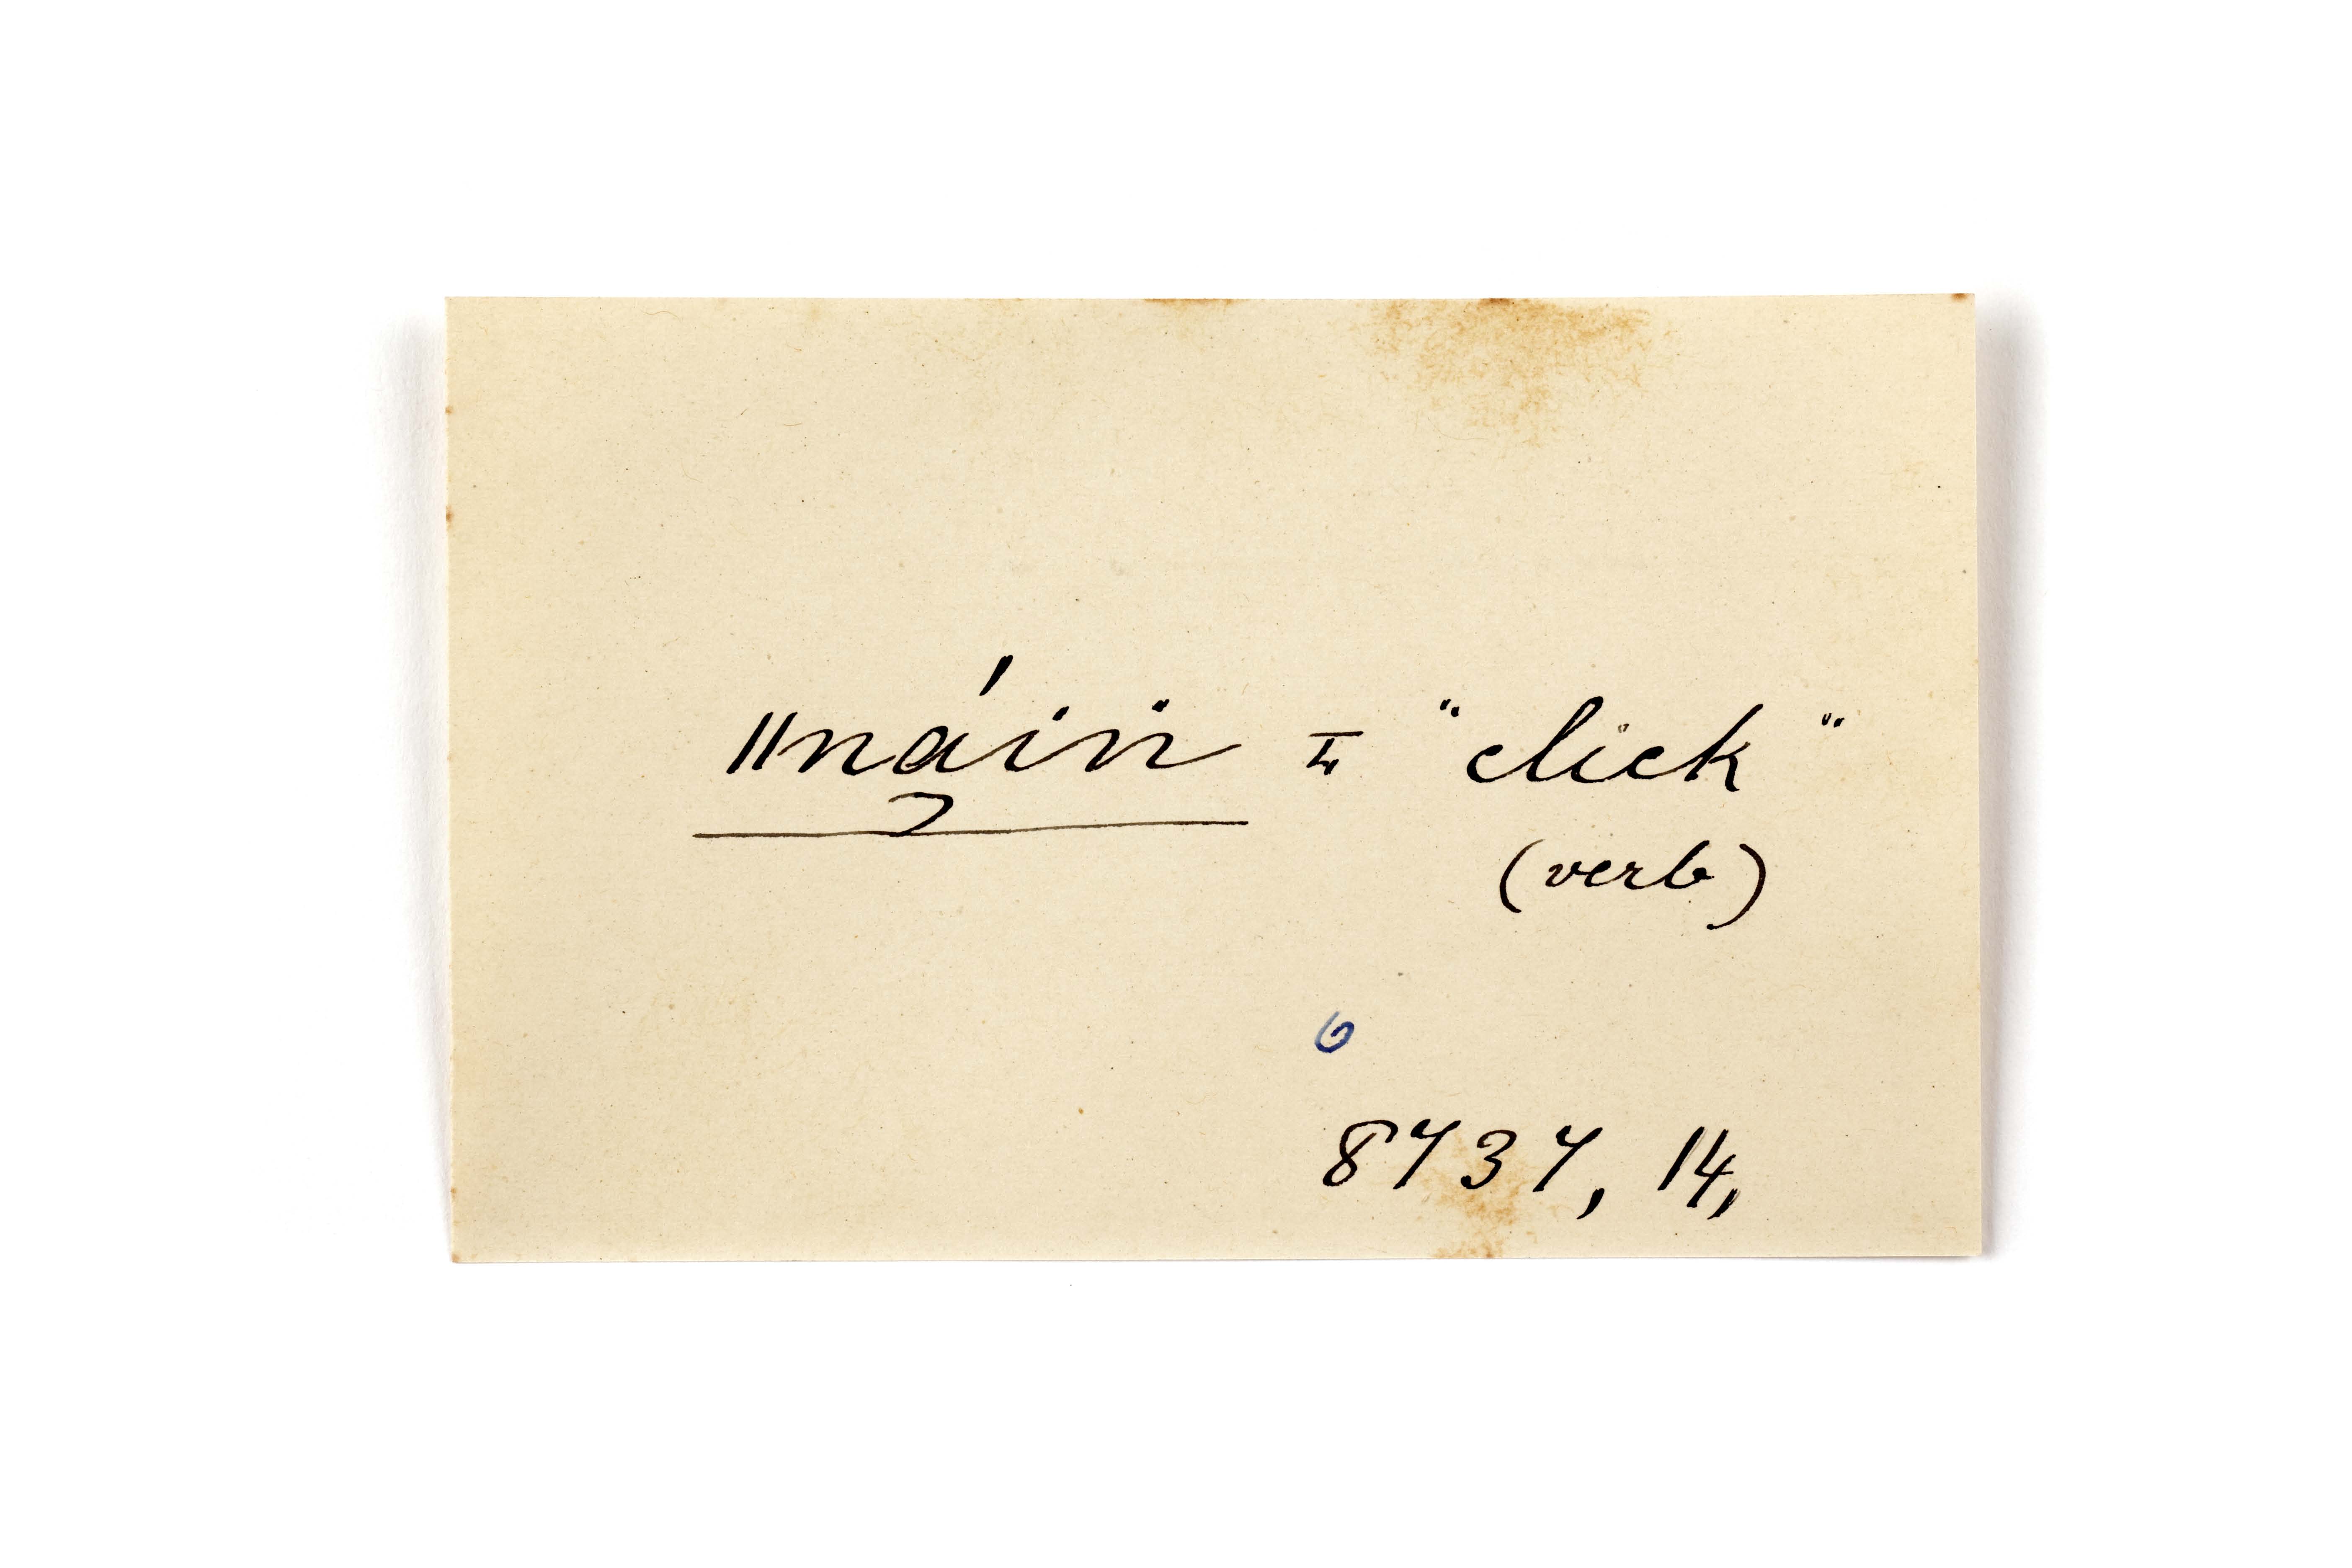 ǁná̜iṅ = "click"
(verb)
6
8737, 14,